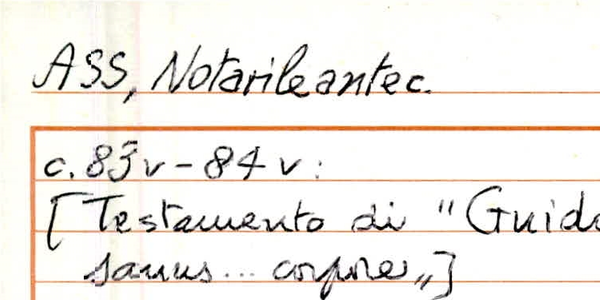 ASS, Notarile antec.
c. 83v - 84v:
[Testamento di "Guido
sanus... corpore„]